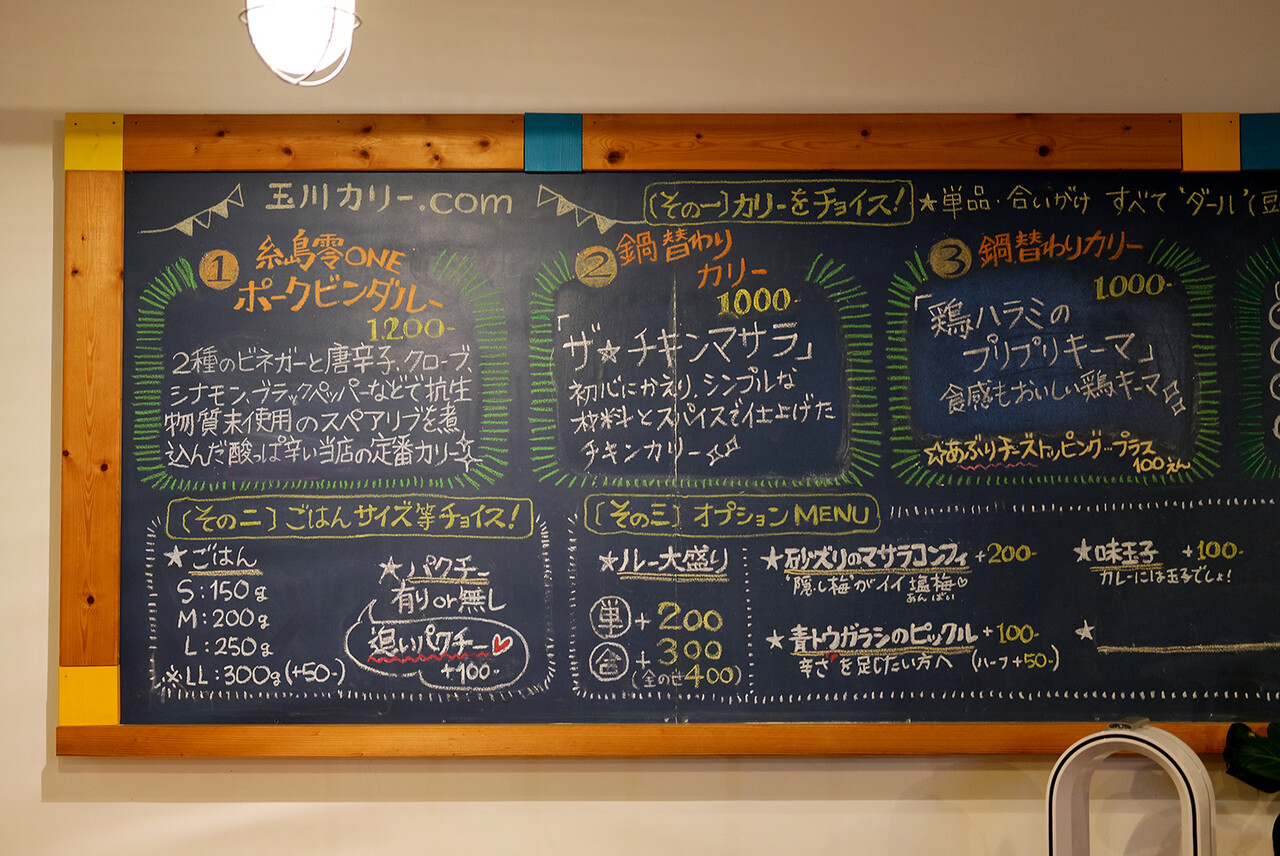 玉川カリー.com
(その一)カリーをチョイス!
★単品・合いがけ すべて‘ダール’(豆
① 糸島零ONE
ポークビンダルー
1200-
2種のビネガーと唐辛子、クローブ、
シナモン、ブラックペッパーなどで抗生
物質未使用のスペアリブを煮
込んだ酸っぱ辛い当店の定番カリー
② 鍋替わり
カリー
1000-
「ザ☆チキンマサラ」
初心にかえり、シンプルな
材料とスパイスで仕上げた
チキンカリー
③ 鍋替わりカリー
1000-
「鶏ハラミの
プリプリキーマ」
食感もおいしい鶏キーマ
☆あぶりチーズトッピング…プラス
100えん
(その二)ごはんサイズ等チョイス!
★ごはん
S:150g
M:200g
L:250g
※LL:300g(+50-)
★パクチー
有りor無し
追いパクチー♥
+100-
(その三)オプションMENU
★ルー大盛り
単+200
合+300
(全のせ400)
★砂ズリのマサラコンフィ +200-
‘隠し梅’がイイ塩梅♡
あんばい
★青トウガラシのピックル +100-
辛さを足したい方へ (ハーフ+50-)
★味玉子 +100-
カレーには玉子でしょ!
★